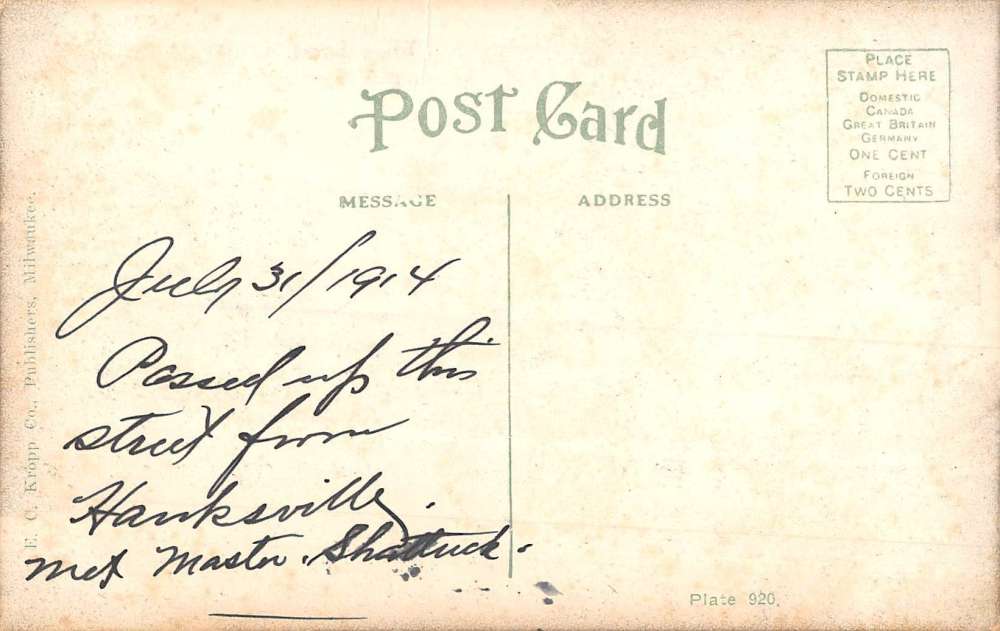 Post Card
PLACE
STAMP HERE
DOMESTIC
CANADA
GREAT BRITAIN
GERMANY
ONE CENT
FOREIGN
TWO CENTS
MESSAGE
ADDRESS
July 31/1914
Passed up this
street from
Hanksville.
met Master. Shattuck.
E. C. Kropp Co., Publishers, Milwaukee.
Plate 920.